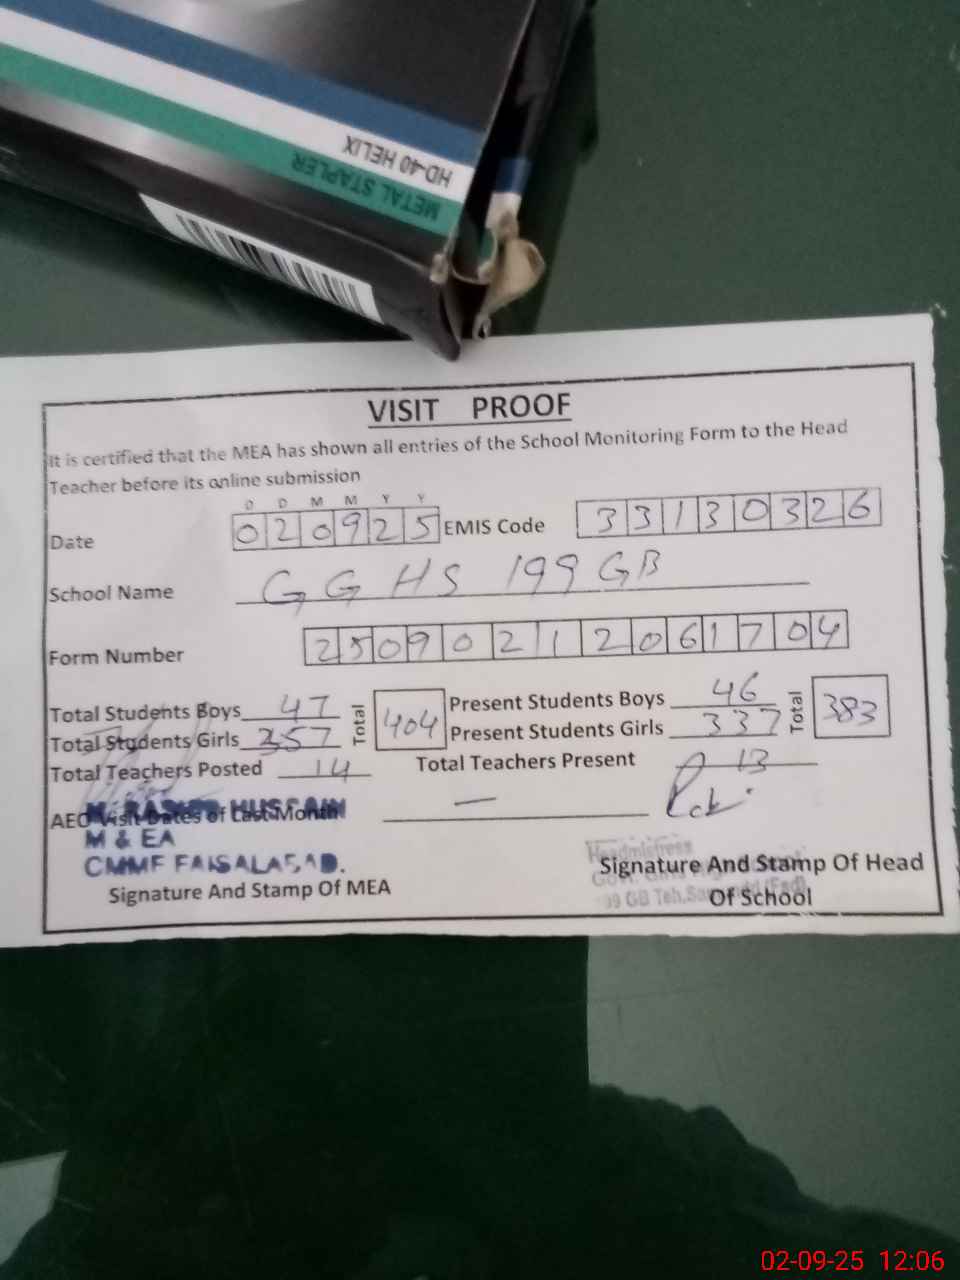 HD-40 HELIX
METAL STAPLER
VISIT PROOF
It is certified that the MEA has shown all entries of the School Monitoring Form to the Head
Teacher before its online submission
D D M M Y Y
Date 020925 EMIS Code 33130326
School Name GGHS 199 GB
Form Number 25090211206 1704
Total Students Boys 47 Total 404 Present Students Boys 46 Total 383
Total Students Girls 357 Present Students Girls 337
Total Teachers Posted 14 Total Teachers Present 13
AEO Visit Dates of Last Month —
M. RASHID HUSSAIN
M & EA
CMMF FAISALABAD.
Signature And Stamp Of MEA
Headmistress
Signature And Stamp Of Head
Of School
02-09-25 12:06